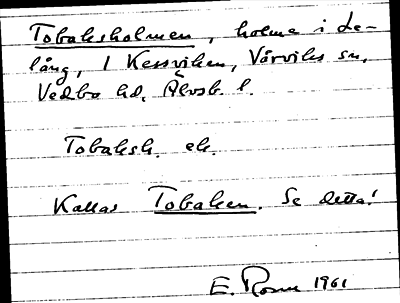 Tobaksholmen, holme i Le-
lång, I Kessviken, Vårviks sn,
Vedbo hd, Älvsb. l.
Tobaksh. ek.
Kallas Tobaken. Se detta!
E. Rosen 1961